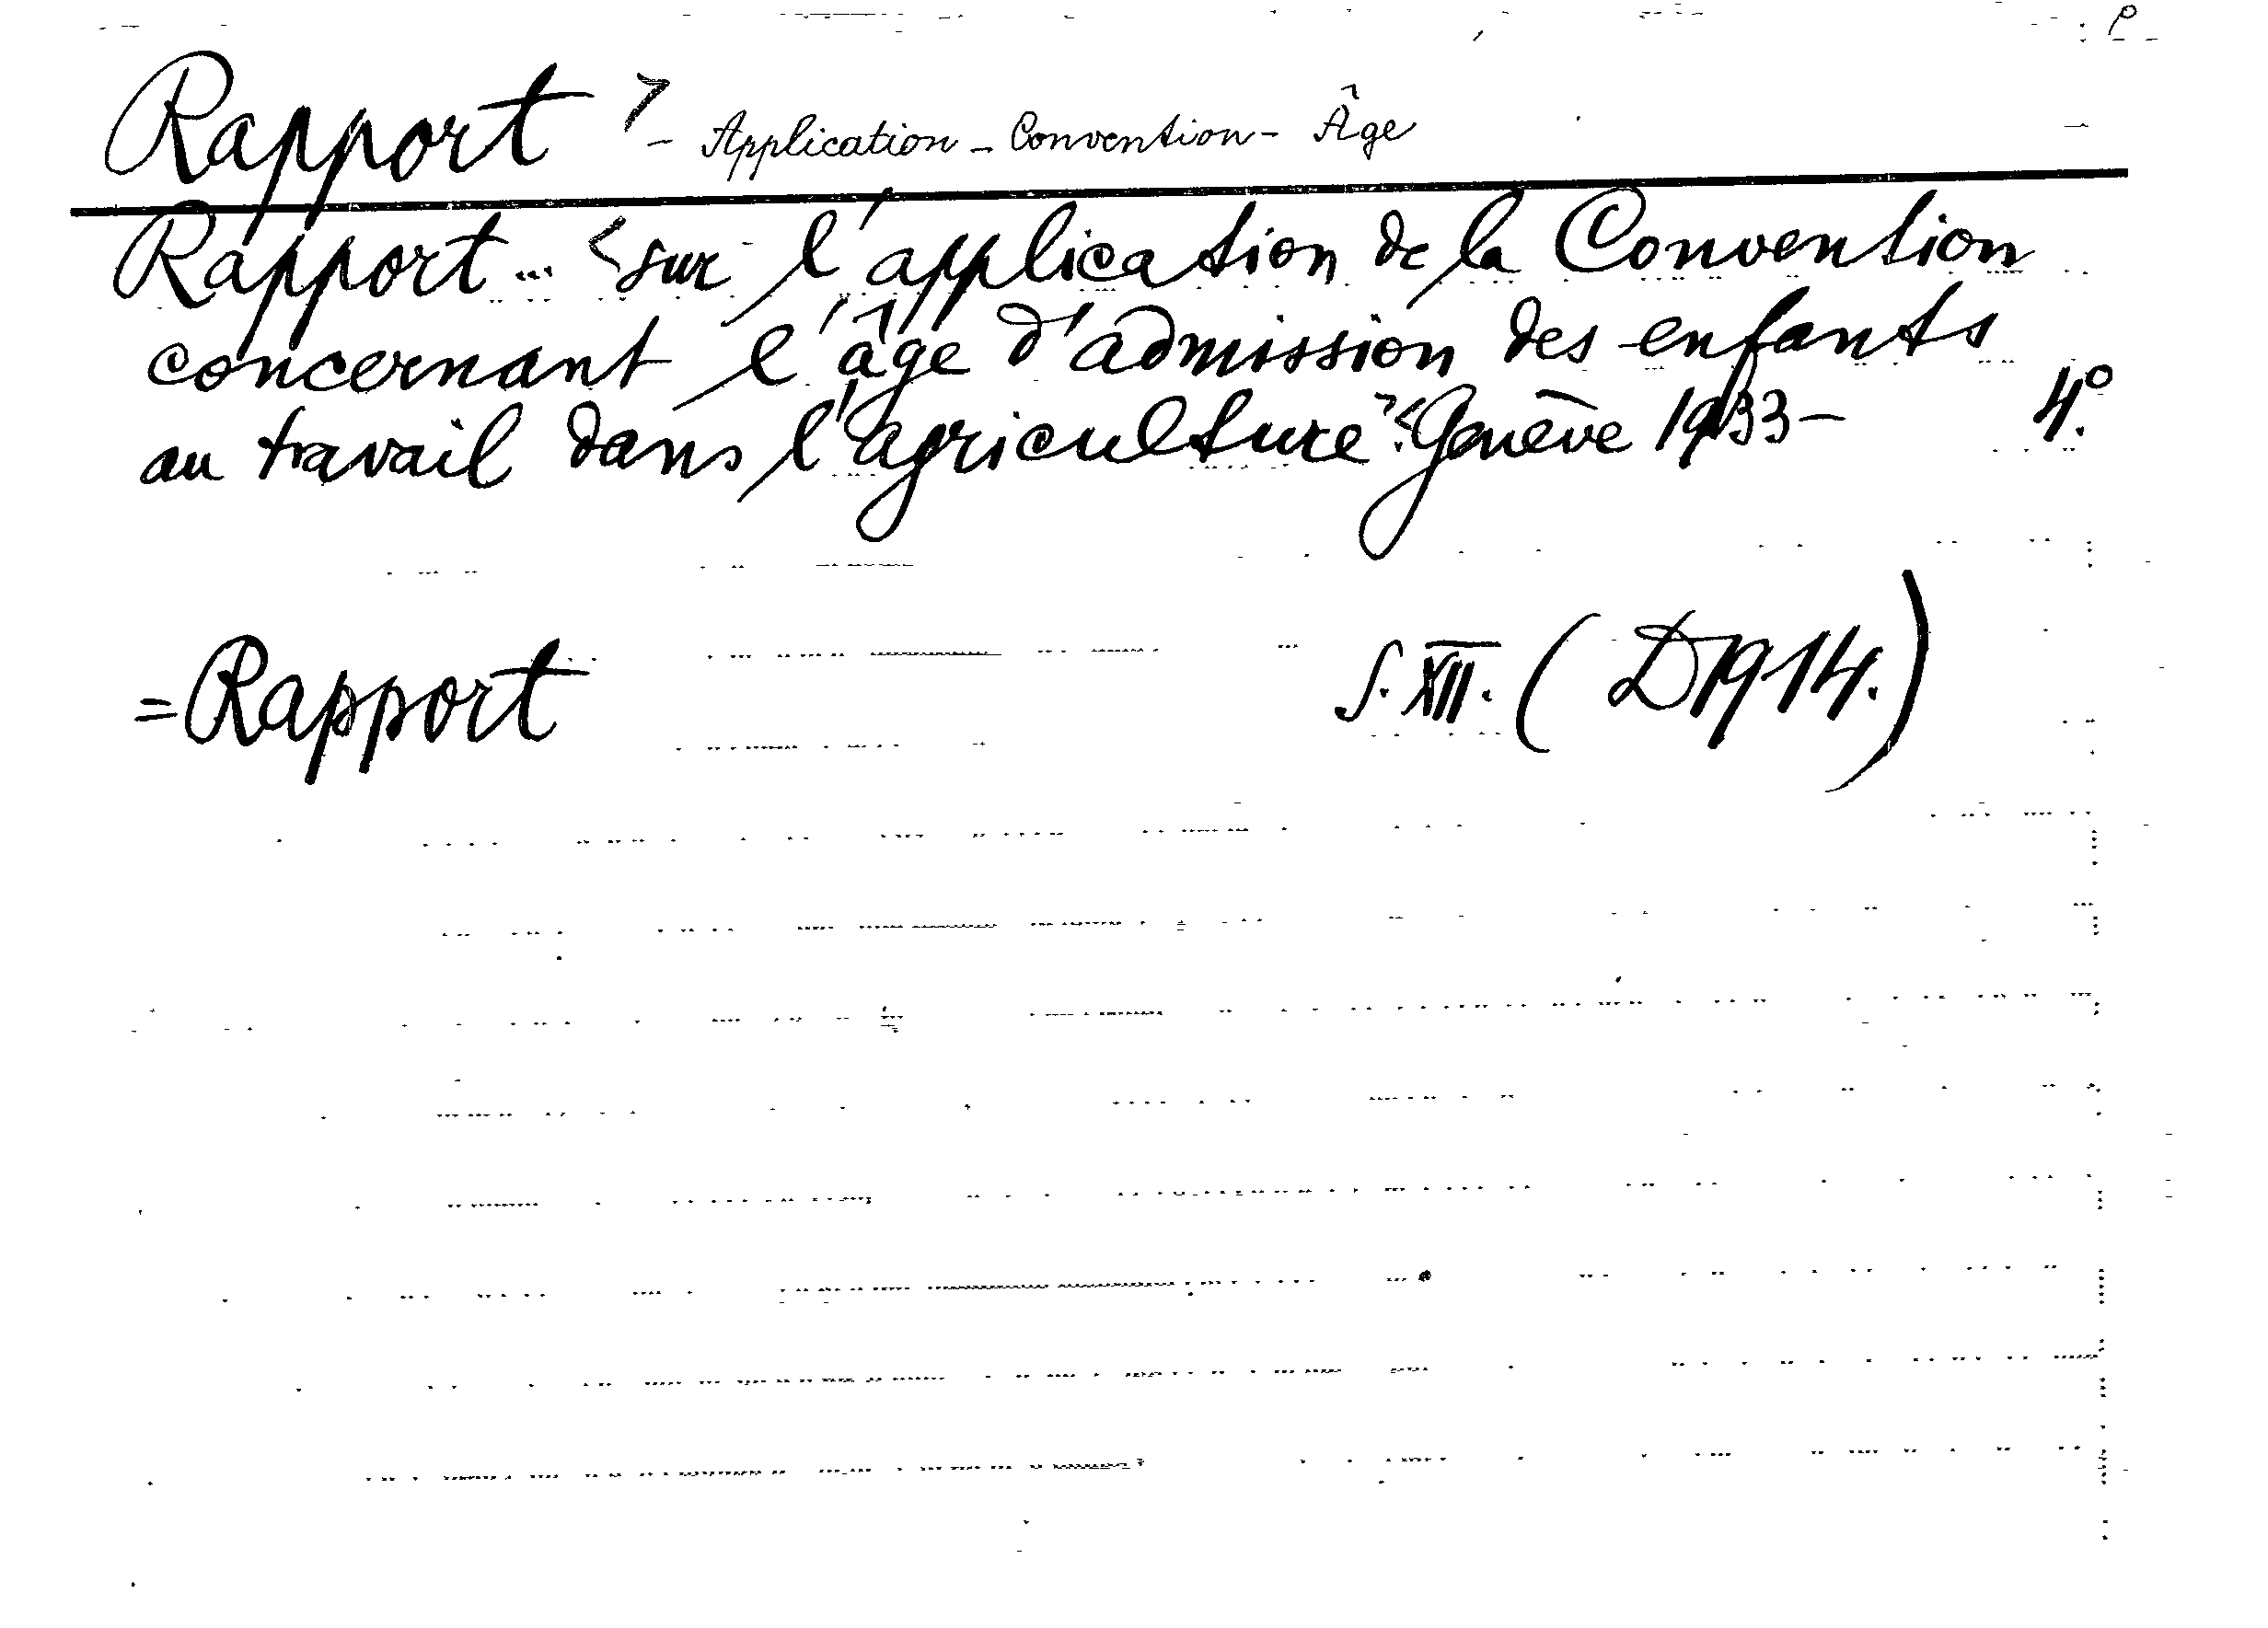 Rapport > - Application - Convention - Âge
Rapport ... < sur l'application de la Convention
concernant l'âge d'admission des enfants
au travail dans l'agriculture > < Genève 1933 - 4.º
= Rapport S. XII. ( D 1914. )